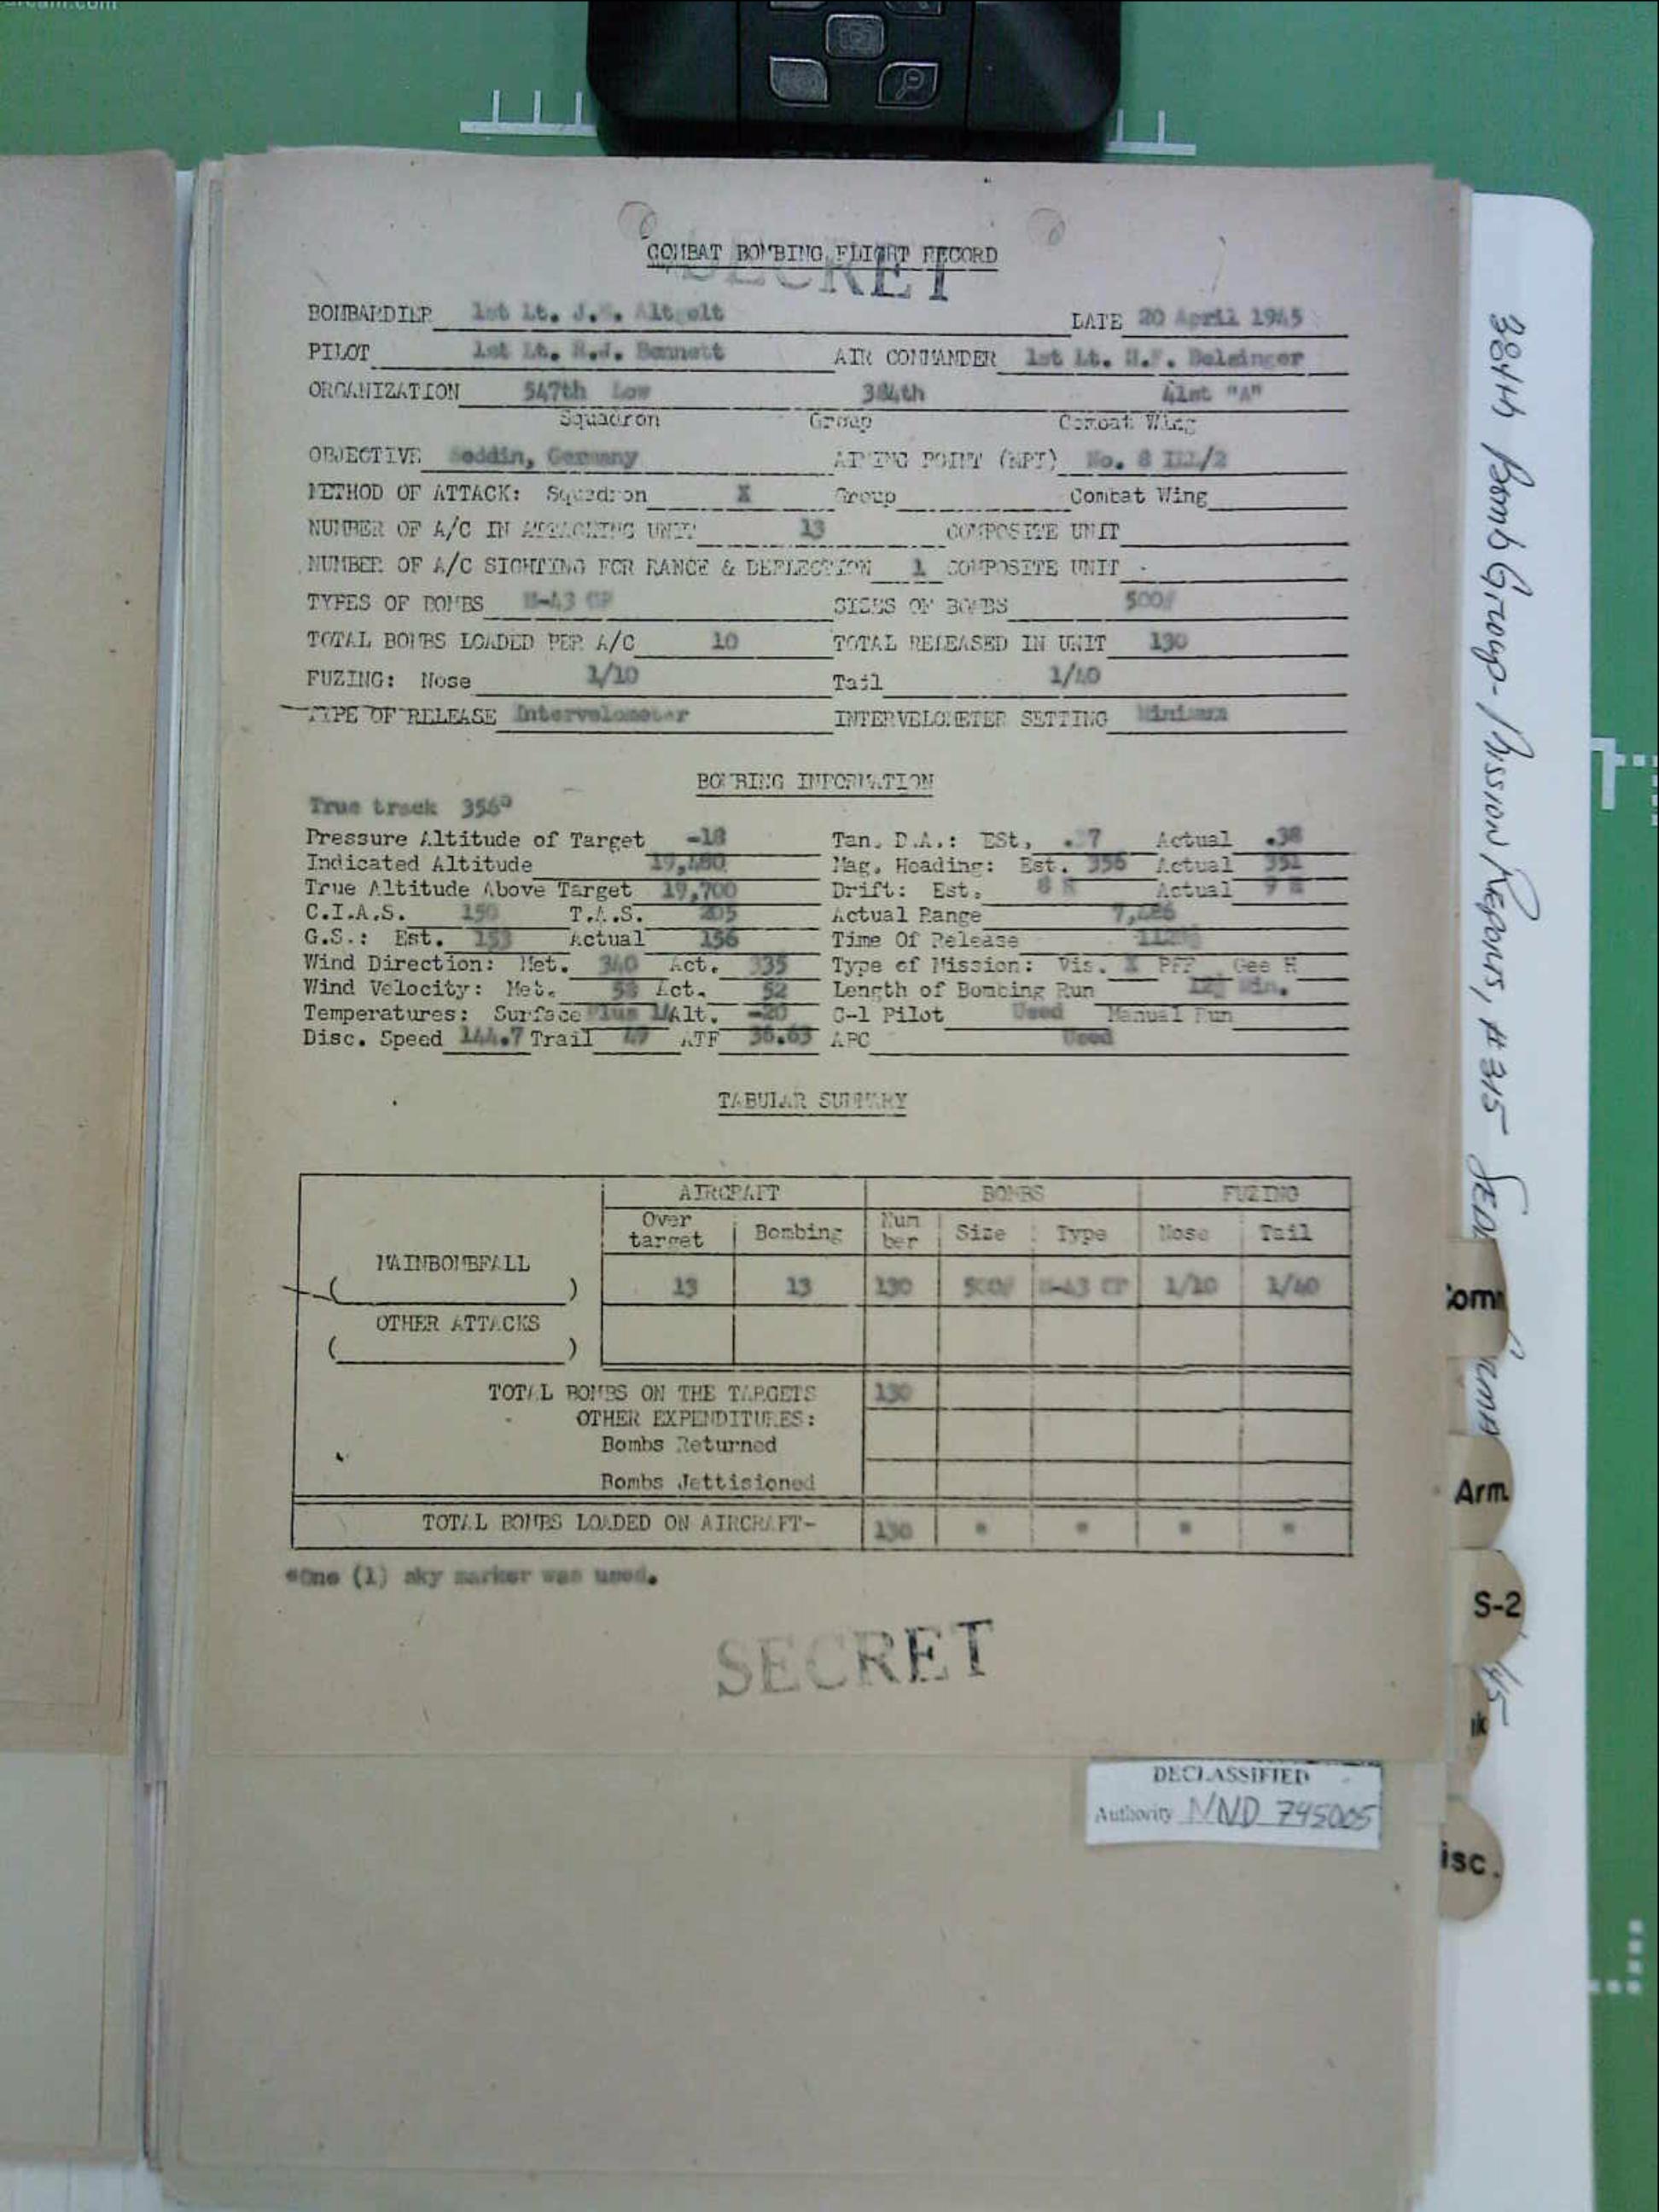 COMBAT BOMBING FLIGHT RECORD
SECRET
BOMBARDIER 1st Lt. J. DATE 20 April 1945
PILOT 1st Lt. R.J. Bennett AIR COMMANDER 1st Lt.
ORGANIZATION 547th Low 384th 41st "A"
Squadron Group Combat Wing
OBJECTIVE Seddin, Germany AIMING POINT (MPI) No. 8
METHOD OF ATTACK: Squadron X Group Combat Wing
NUMBER OF A/C IN ATTACKING UNIT 13 COMPOSITE UNIT
NUMBER OF A/C SIGHTING FOR RANGE & DEFLECTION 1 COMPOSITE UNIT
TYPES OF BOMBS M-43 GP SIZES OF BOMBS 500#
TOTAL BOMBS LOADED PER A/C 10 TOTAL RELEASED IN UNIT 130
FUZING: Nose 1/10 Tail 1/40
TYPE OF RELEASE Intervelometer INTERVELOMETER SETTING Minimum
BOMBING INFORMATION
True track 356°
Pressure Altitude of Target -18 Tan. D.A.: ESt. Actual .38
Indicated Altitude Mag. Heading: Est. 356 Actual 351
True Altitude Above Target 19,700 Drift: Est. Actual
C.I.A.S. 150 T.A.S. 205 Actual Range
G.S.: Est. 153 Actual 156 Time Of Release
Wind Direction: Met. 340 Act. 335 Type of Mission: Vis. X PFF Gee H
Wind Velocity: Met. Act. 52 Length of Bombing Run Min.
Temperatures: Surface Plus Alt. -20 C-1 Pilot Used Manual Run
Disc. Speed 144.7 Trail 49 ATF 36.63 APC Used
TABULAR SUMMARY
AIRCRAFT BOMBS FUZING
Over target Bombing Num ber Size Type Nose Tail
MAINBOMBFALL
( ) 13 13 130 500# M-43 GP 1/10 1/40
OTHER ATTACKS
( )
TOTAL BOMBS ON THE TARGETS 130
OTHER EXPENDITURES:
Bombs Returned
Bombs Jettisioned
TOTAL BOMBS LOADED ON AIRCRAFT- 130 " " " "
*One (1) sky marker was used.
SECRET
DECLASSIFIED
Authority NND 745005
384th Bomb Group - Mission Reports, #315
Arm.
S-2
isc.